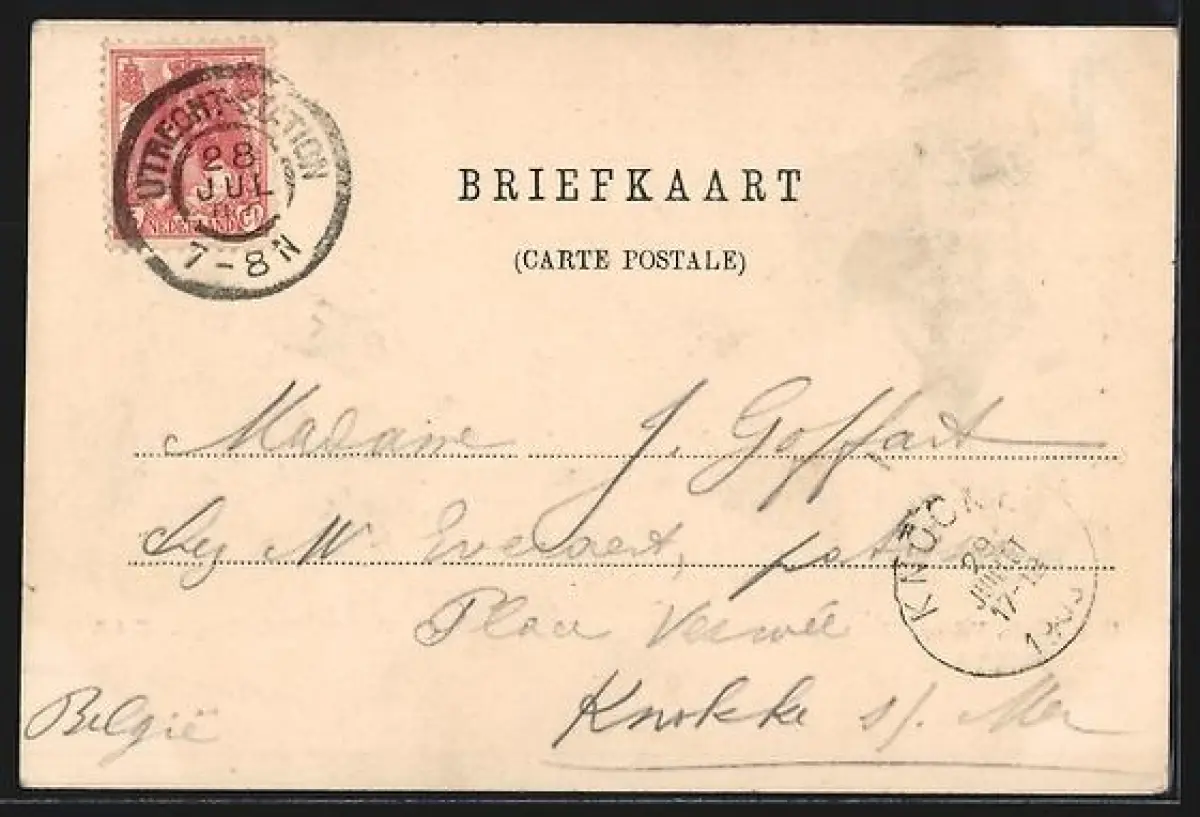 UTRECHT-STATION
28
JUL
7-8N
NEDERLAND
BRIEFKAART
(CARTE POSTALE)
Madame J. Goffart
Mr Everaert,
KNOCKE
29
JUILLET
17-18
Place Verwée
Knokke s/. Mer
België